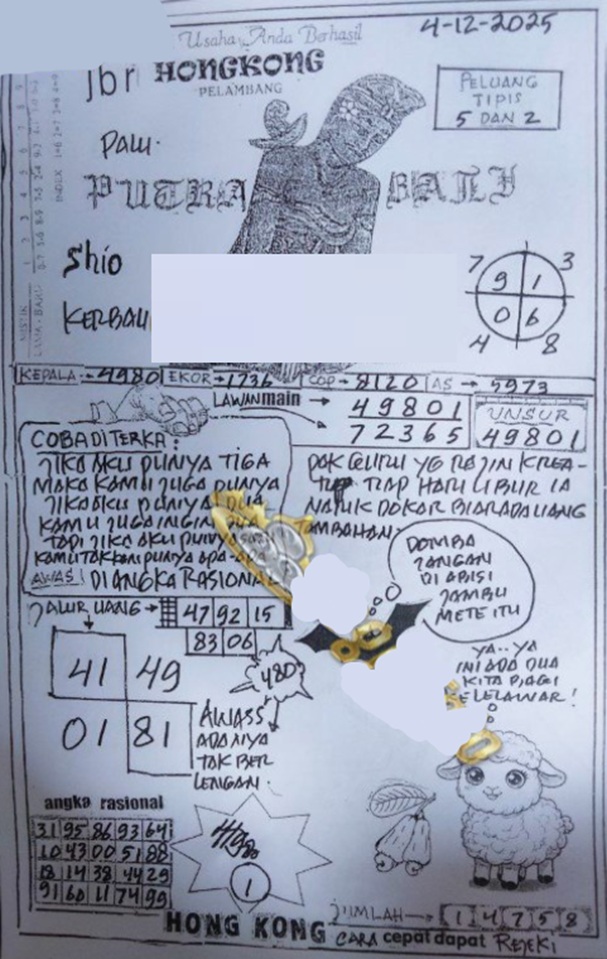 Usaha Anda Berhasil
4-12-2025
HONGKONG
PELAMBANG
PELUANG
TIPIS
5 DAN 2
PALU.
PUTRA BALI
Shio
KERBAU
7 3
9 1
0 6
4 8
KEPALA :- 4980 EKOR → 1736 COP → 8120 AS → 5973
LAWAN main → 49801
72365
UNSUR
49801
COBA DITERKA :
JIKA AKU PUNYA TIGA
MAKA KAMU JUGA PUNYA
JIKA AKU PUNYA DUA
KAMU JUGA INGIN DUA
TAPI JIKA AKU PUNYA
KAMU TAK KAN PUNYA APA-APA
AWAS! DI ANGKA RASIONAL
PAK GURU YG RAJIN KREA-
TIF TIAP HARI LIBUR IA
NAIK DOKAR BIAR ADA UANG
TAMBAHAN.
DOMBA
JANGAN
DI ABISI
JAMBU
METE ITU
JALUR UANG → 47 92 15
83 06
480
41 49
01 81
AWASS
ADANYA
TAK BER
LENGAN.
YA.. YA
INI ADA DUA
KITA BAGI
KELELAWAR!
angka rasional
31 95 86 93 64
10 43 00 51 88
18 14 38 44 29
91 60 11 74 99
1
JUMLAH → 1 4 7 5 8
HONG KONG CARA cepat dapat REJEKI